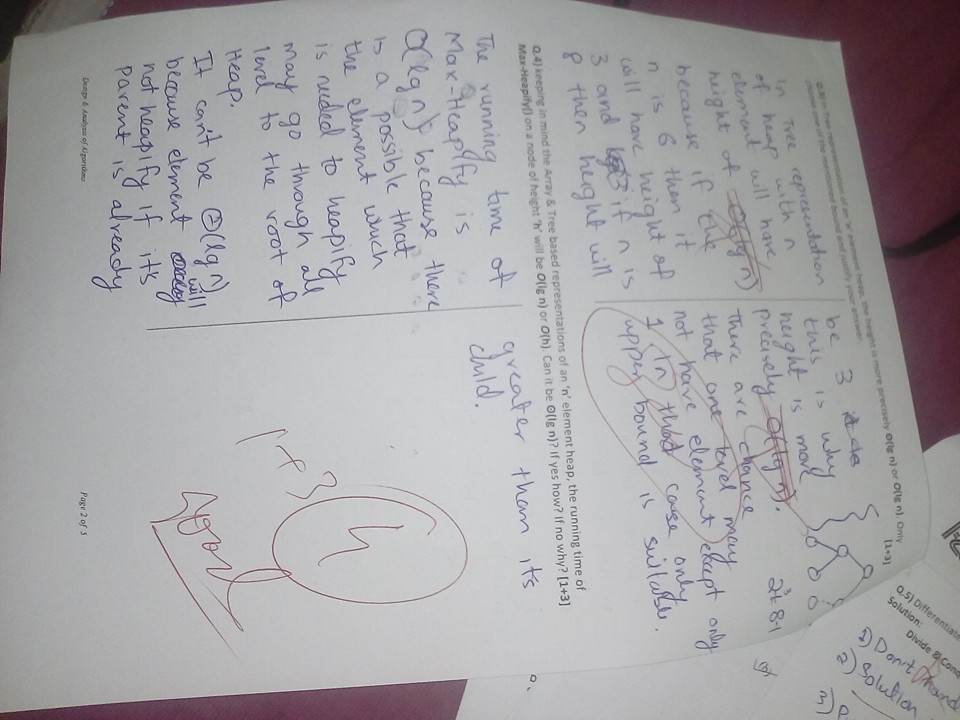 Q.3) In tree representation of an 'n' element heap, the height is more precisely Θ(lg n) or O(lg n). Only
choose one of the mentioned bound and justify your answer. [1+3]
in Tree representation
of heap with n
element will have
height of O(lg n)
because if the
n is 6 then it
will have height of
3 and if n is
8 then height will
be 3
this is why
height is more
precisely O(lg n).
There are chance
that one level may
not have element except only
1 in that cause only
upper bound is suitable.
2³ = 8-1
Q.4) keeping in mind the Array & Tree based representations of an 'n' element heap, the running time of
Max-Heapify() on a node of height 'h' will be O(lg n) or O(h). Can it be Θ(lg n)? If yes how? If no why? [1+3]
The running time of
Max-Heapify is
O(lg n) because there
is a possible that
the element which
is needed to heapify
may go through all
level to the root of
Heap.
It can't be Θ(lg n)
because element will
not heapify if it's
Parent is already
greater than its
child.
1+3
4
Good
Design & Analysis of Algorithms
Page 2 of 5
Q.5) Differentiate
Solution:
Divide &
1) Don't
2) Solution
3)